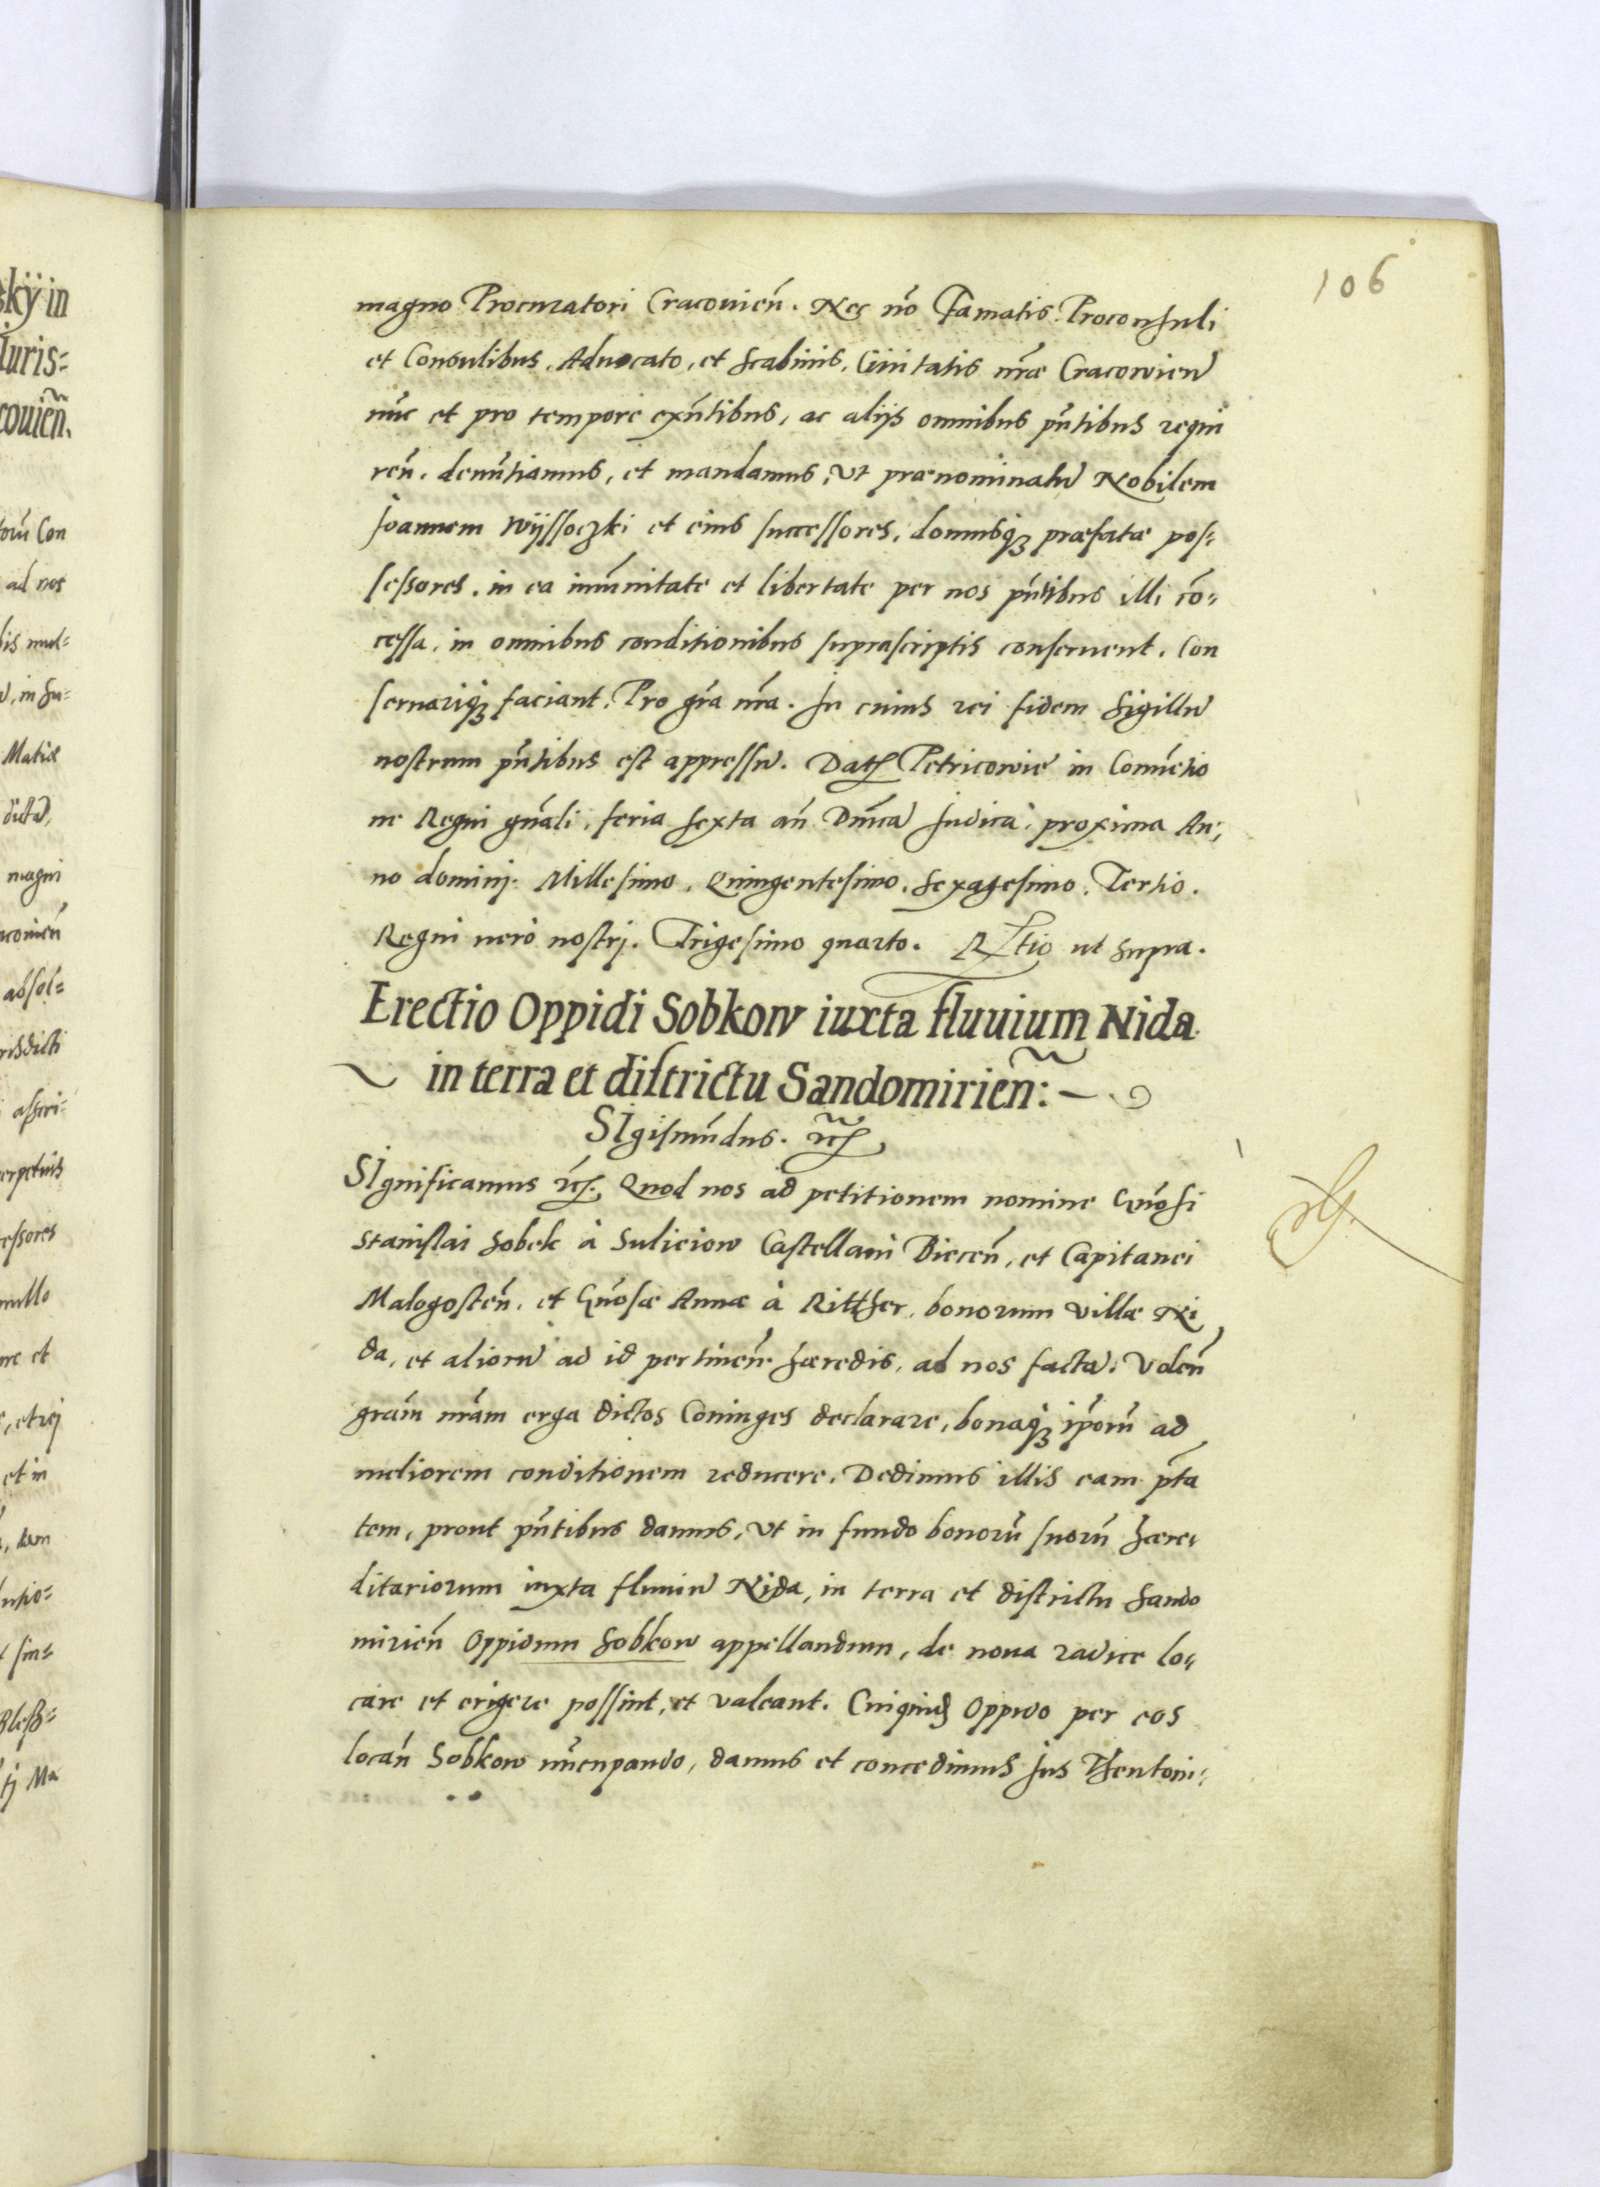 106
magno Procuratori Cracouieñ. Nec nõ Famatis Proconsuli
et Consulibus, Aduocato, et Scabinis, Ciuitatis nr̃æ Cracowieñ
nũc et pro tempore exñtibus, ac alijs omnibus pñtibus requi
reñ. denũtiamus, et mandamus, Vt prænominatũ Nobilem
Joannem Wijssoczki et eius successores, domusqꝫ præfatæ pos-
sessores, in ea imũnitate et libertate per nos pñtibus illi cõ-
cessa, in omnibus conditionibus suprascriptis conseruent, Con
seruariqꝫ faciant, Pro gr̃a nr̃a. In cuius rei fidem Sigillũ
nostrum pñtibus est appressũ. Datꝭ Petricowiæ in Conuẽtio
ne Regni gñali, feria sexta añ Dñicã Judica, proxima An-
no dominj. Millesimo, Quingentesimo, Sexagesimo, Tertio.
Regni uero nostrj. Trigesimo quarto. Rꝉtio ut supra.
Erectio Oppidi Sobkow iuxta fluuium Nida
in terra et districtu Sandomirieñ:
SIgismũdus. ꝛc̃ꝭ
SIgnificamus ꝛc̃ꝭ. Quod nos ad petitionem nomine Gñosi
Stanislai Sobek à Suliciow Castellani Bieceñ, et Capitanei
Malogosteñ, et Gñosæ Annæ à Ritther, bonorum villæ Ni
da, et aliorũ ad id pertineñ hæredis, ad nos factã. Voleñ
gram̃ nr̃am erga dictos Coniuges declarare, bonaqꝫ ip̃orũ ad
meliorem conditionem reducere, Dedimus illis eam p̃ta
tem, prout pñtibus damus, Vt in fundo bonorũ suorũ hære-
ditariorum iuxta fluuiũ Nida, in terra et districtu Sando
mirieñ Oppidum Sobkow appellandum, de noua radice lo-
care et erigere possint, et valeant. Cuiquidꝫ Oppido per eos
locañ Sobkow nũcupando, damus et concedimus Jus Theutoni-